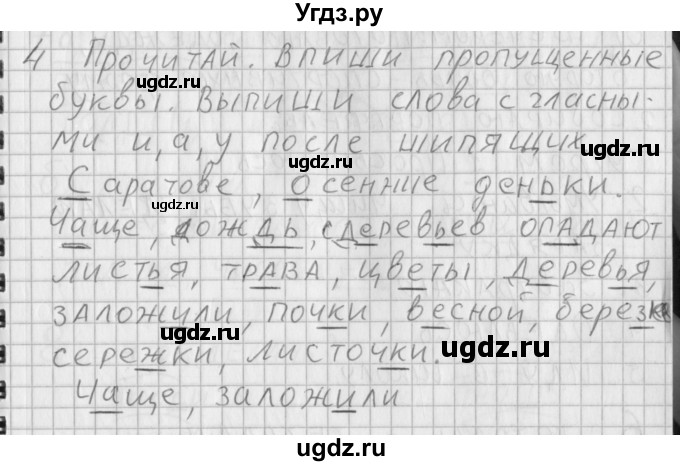 Угдз.ру
4 Прочитай. Впиши пропущенные
буквы. Выпиши слова с гласны-
ми и, а, у после шипящих.
Саратове, осенние деньки.
Чаще, дождь, с деревьев опадают
листья, трава, цветы, деревья,
заложили, почки, весной, березке
сережки, листочки.
Чаще, заложили
ugdz.ru
ugdz.ru
ugdz.ru
ugdz.ru
ugdz.ru
ugdz.ru
ugdz.ru
ugdz.ru
ugdz.ru